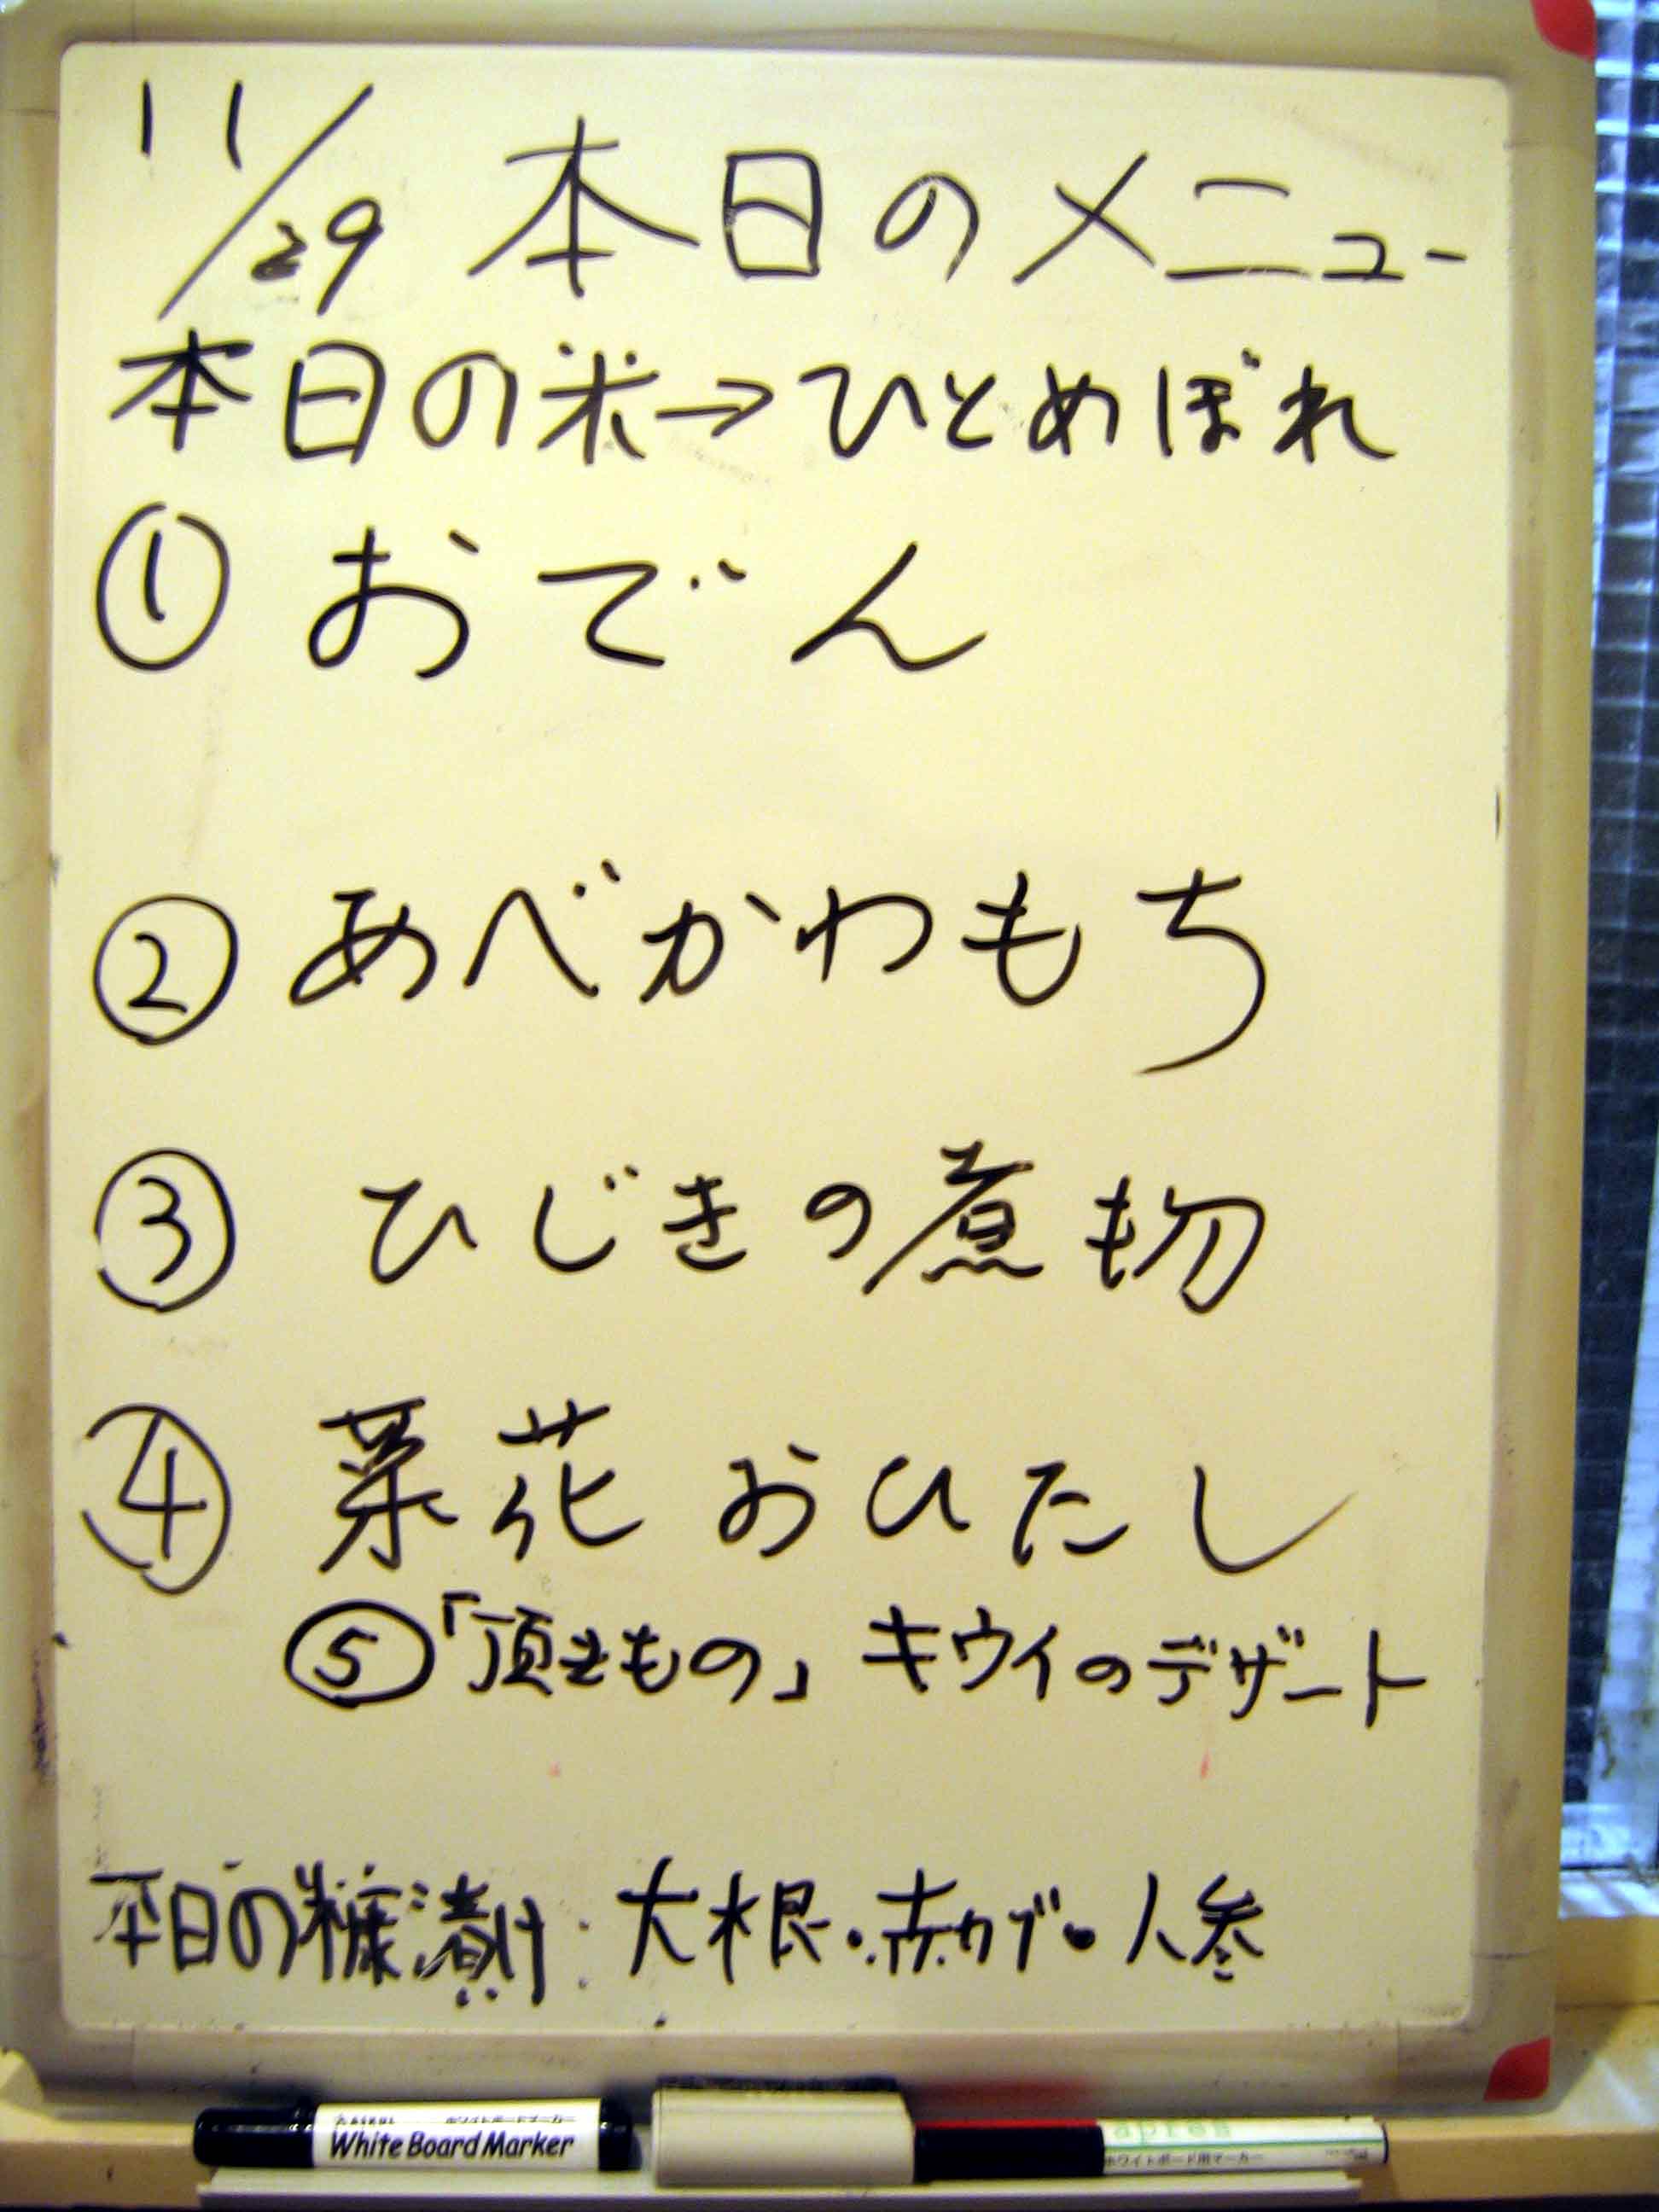 11/29 本日のメニュー
本日の米→ひとめぼれ
① おでん
② あべかわもち
③ ひじきの煮物
④ 菜花おひたし
⑤「頂きもの」キウイのデザート
本日の糠漬け:大根・赤カブ・人参
ホワイトボードマーカー
White Board Marker
apres
ホワイトボード用マーカー